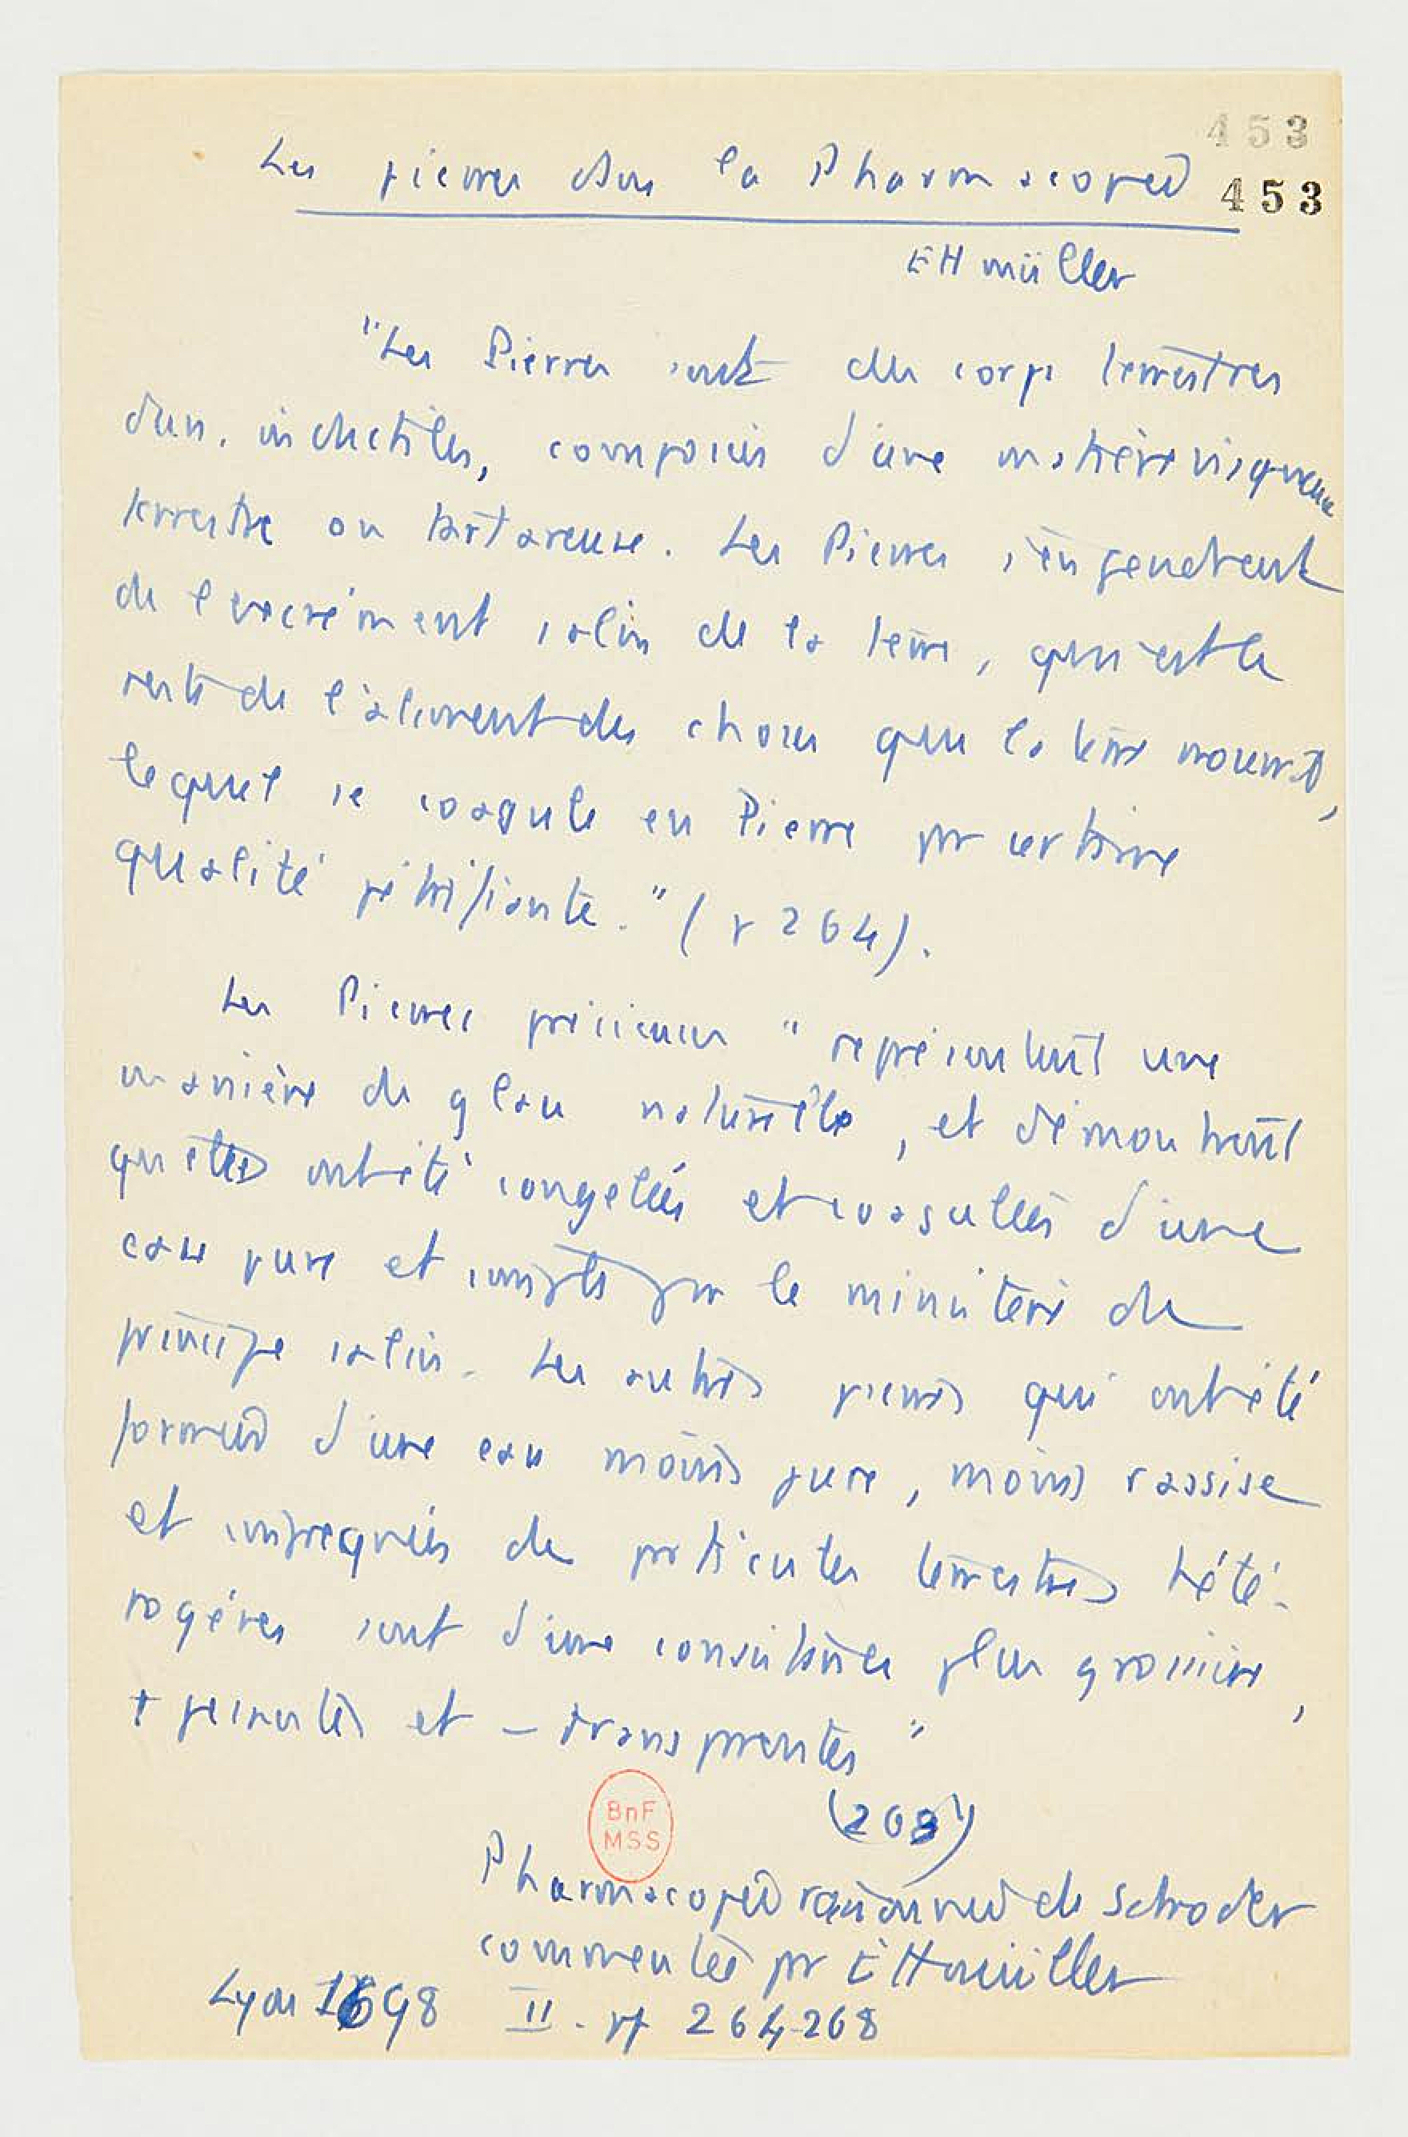 453
Les pierres dans la Pharmacopée 453
Ettmüller
"Les Pierres sont des corps terrestres
durs, inductiles, composés d'une matière visqueuse
terrestre ou tartareuse. Les Pierres s'engendrent
de l'excrément salin de la terre, qui est le
reste de l'aliment des choses que la terre nourrit,
lequel se coagule en Pierre par certaine
qualité pétrifiante." (p 264).
Les Pierres précieuses "représentent une
manière de glace naturelle, et démontrent
qu'elles ont été congelées et coagulées d'une
eau pure et simple par le ministère du
principe salin. Les autres pierres qui ont été
formées d'une eau moins pure, moins rassise
et imprégnées de particules terrestres hété-
rogènes sont d'une consistance plus grossière,
+ pesantes et – transparentes"
(268)
BnF
MSS
Pharmacopée raisonnée de Schroder
commentée par Ettmüller
Lyon 1698 II - pp 264-268